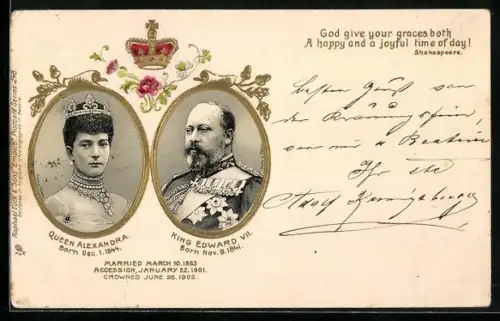 God give your graces both
A happy and a joyful time of day!
Shakespeare.
Besten Gruß von
der Krönungsfeier,
von mir u
Ihr
Adolf
QUEEN ALEXANDRA.
Born Dec. 1. 1844.
KING EDWARD VII.
Born Nov. 9. 1841.
MARRIED MARCH 10. 1863
ACCESSION, JANUARY 22, 1901.
CROWNED JUNE 26. 1902.
Raphael Tuck & Sons' "Empire" Postcard Series